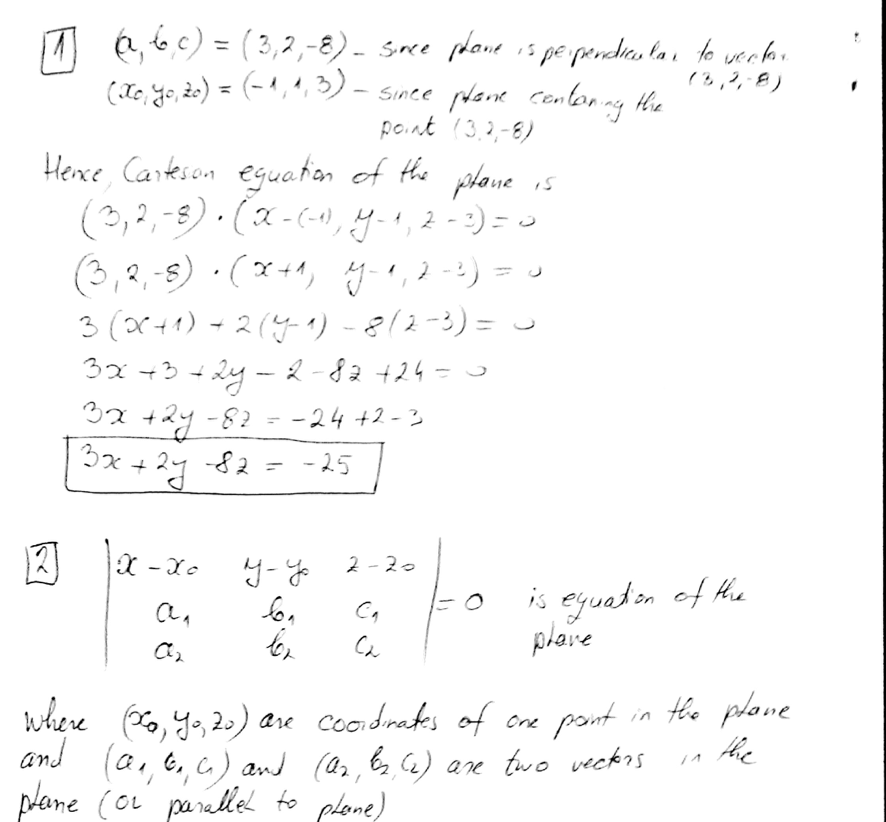 1 (a, b, c) = (3, 2, -8) - since plane is perpendicular to vector
(3, 2, -8)
(x₀, y₀, z₀) = (-1, 1, 3) - since plane contaning the
point (3, 2, -8)
Hence, Carteson equation of the plane is
(3, 2, -8) · (x-(-1), y-1, z-3) = 0
(3, 2, -8) · (x+1, y-1, z-3) = 0
3(x+1) + 2(y-1) - 8(z-3) = 0
3x + 3 + 2y - 2 - 8z + 24 = 0
3x + 2y - 8z = -24 + 2 - 3
3x + 2y - 8z = -25
2 | x - x₀ y - y₀ z - z₀ |
| a₁ b₁ c₁ | = 0 is equation of the
| a₂ b₂ c₂ | plane
where (x₀, y₀, z₀) are coordinates of one point in the plane
and (a₁, b₁, c₁) and (a₂, b₂, c₂) are two vectors in the
plane (or parallel to plane)